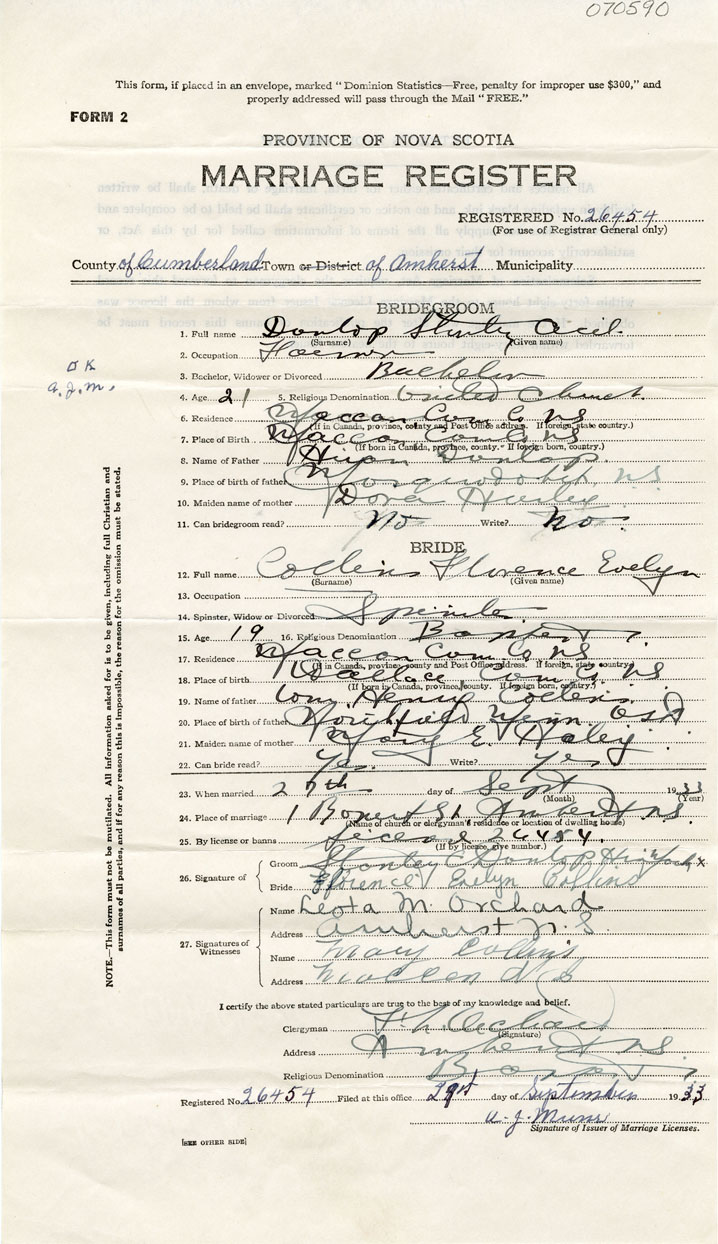 070590
This form, if placed in an envelope, marked "Dominion Statistics—Free, penalty for improper use $300," and
properly addressed will pass through the Mail "FREE."
FORM 2
PROVINCE OF NOVA SCOTIA
MARRIAGE REGISTER
REGISTERED No. 26454
(For use of Registrar General only)
County of Cumberland Town or District of Amherst Municipality
BRIDEGROOM
1. Full name Dunlop Stanley Cecil
(Surname) (Given name)
2. Occupation Farmer
3. Bachelor, Widower or Divorced Bachelor
OK
A.J.M.
4. Age 21 5. Religious Denomination United Church
6. Residence Maccan Cum Co NS
(If in Canada, province, county and Post Office address. If foreign, state country.)
7. Place of Birth Maccan Cum Co NS
(If born in Canada, province, county. If foreign born, country.)
8. Name of Father Hiram Dunlop
9. Place of birth of father N.S.
10. Maiden name of mother Dora Hurley
11. Can bridegroom read? No Write? No
BRIDE
12. Full name Collins Florence Evelyn
(Surname) (Given name)
13. Occupation
14. Spinster, Widow or Divorced Spinster
15. Age 19 16. Religious Denomination Baptist
17. Residence Maccan Cum Co NS
(If in Canada, province, county and Post Office address. If foreign, state country.)
18. Place of birth Wallace Cum Co NS
(If born in Canada, province, county. If foreign born, country.)
19. Name of father Wm Henry Collins
20. Place of birth of father Northfield Minn. USA
21. Maiden name of mother Mary E. Haley
22. Can bride read? Yes Write? Yes
23. When married 27th day of Sept 1933
(Month) (Year)
24. Place of marriage 1 Rupert St Amherst NS
(Name of church or clergyman's residence or location of dwelling house)
25. By license or banns License 26454
(If by licence, give number.)
26. Signature of
Groom Stanley C Dunlop His mark x
Bride Florence Evelyn Collins
27. Signatures of Witnesses
Name Leota M. Orchard
Address Amherst N.S.
Name Mary Collins
Address Maccan N S
I certify the above stated particulars are true to the best of my knowledge and belief.
Clergyman
(Signature)
Address Amherst NS
Religious Denomination Baptist
Registered No. 26454 Filed at this office 29th day of September 1933
A. J. Munro
Signature of Issuer of Marriage Licenses.
[SEE OTHER SIDE]
NOTE.—This form must not be mutilated. All information asked for is to be given, including full Christian and
surnames of all parties, and if for any reason this is impossible, the reason for the omission must be stated.